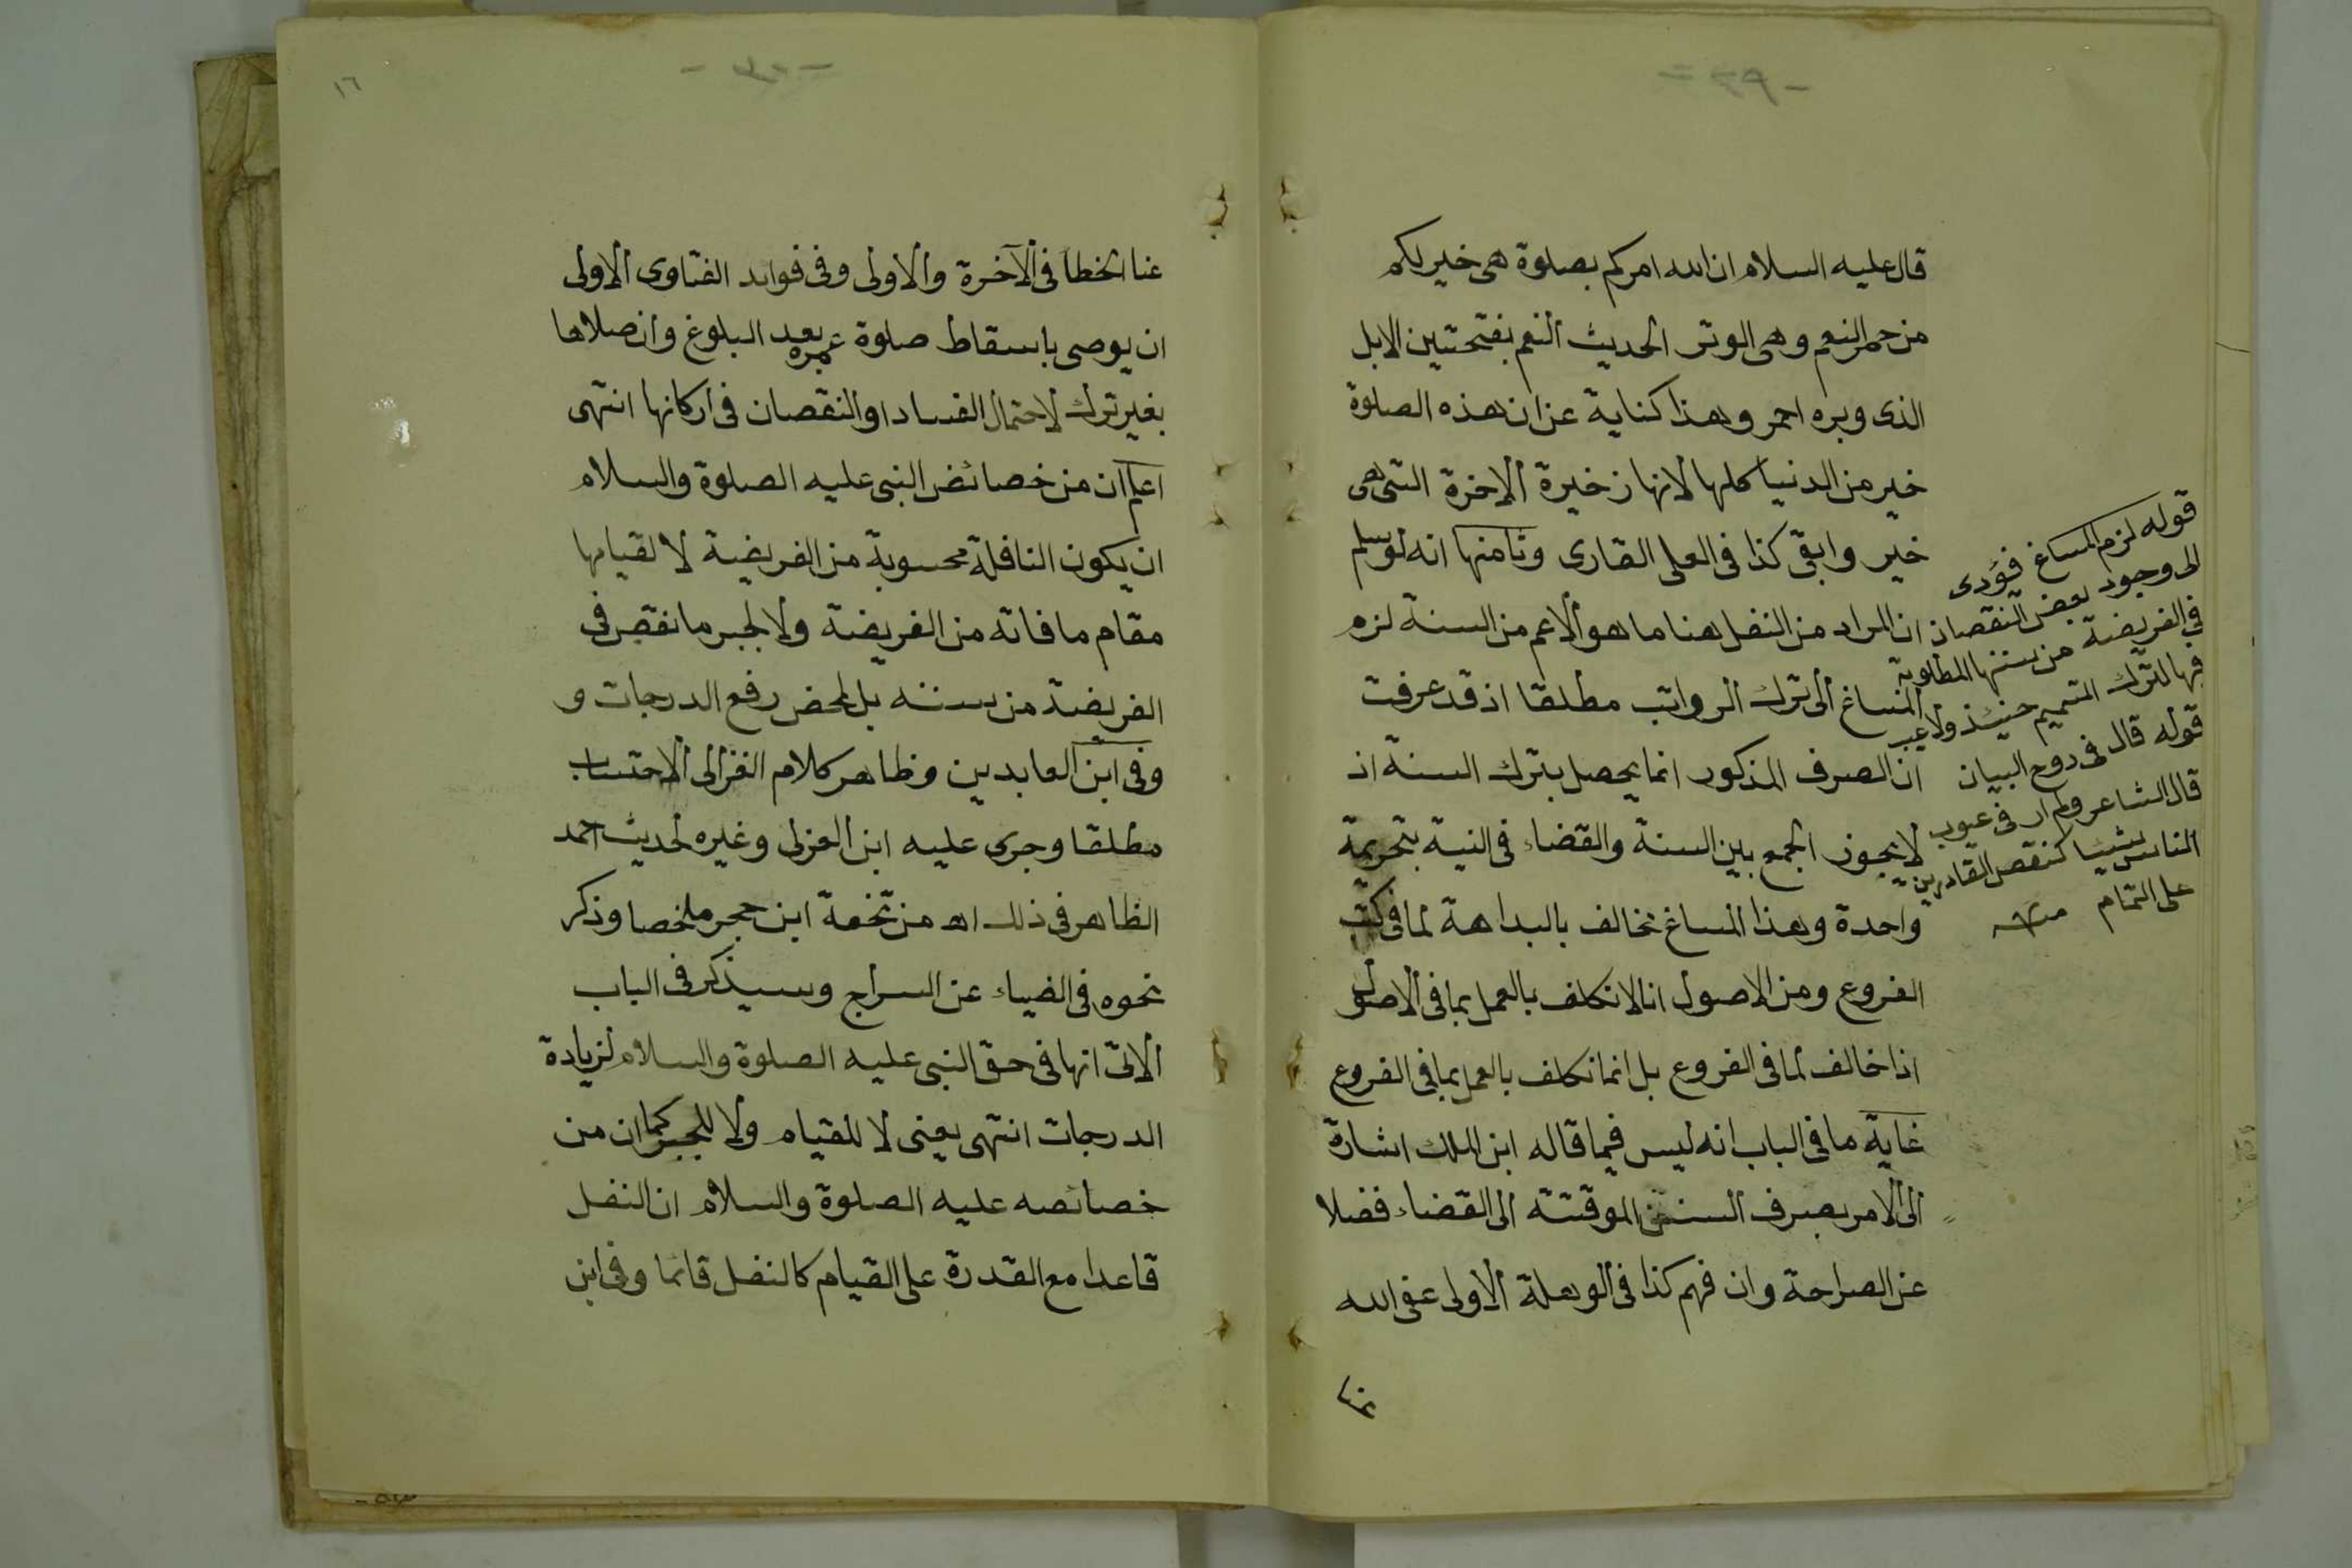 قال عليه السلام ان الله امركم بصلوة هى خير لكم
من حمر النعم وهى الوتر الحديث النعم بفتحتين الابل
الذى وبره احمر وهذا كناية عن ان هذه الصلوة
خير من الدنيا كلها لانها زخيرة الاخرة التى هى
خير وابقى كذا فى العلى القارى وثامنها انه لو سلم
ان المراد من النفل هنا ما هو الاعم من السنة لزم
المساغ الى ترك الرواتب مطلقا اذ قد عرفت
ان الصرف المذكور انما يحصل بترك السنة اذ
لا يجوز الجمع بين السنة والقضاء فى النية بتحريمة
واحدة وهذا المساغ مخالف بالبداهة لما فى كتب
الفروع ومن الاصول انا لا نكلف بالعمل بما فى الاصول
اذا خالف لما فى الفروع بل انما نكلف بالعمل بما فى الفروع
غاية ما فى الباب انه ليس فيما قاله ابن الملك اشارة
الى الامر بصرف السنن الموقتة الى القضاء فضلا
عن الصراحة وان فهم كذا فى الوهلة الاولى عفى الله
عنا
قوله لزم المساغ فؤدى
الى وجود بعض النقصان
فى الفريضة من سننها المطلوبة
فيها لترك المتميم حينئذ ولا عيب
قوله قال فى روح البيان
قال الشاعر ولم ار فى عيوب
الناس شيئا كنقص القادرين
على التمام منه
١٦
عنا الخطا فى الآخرة والاولى وفى فوايد الفتاوى الاولى
ان يوصى باسقاط صلوة عمره بعد البلوغ وان صلاها
بغير ترك لاحتمال الفساد او النقصان فى اركانها انتهى
اعلم ان من خصائص النبى عليه الصلوة والسلام
ان يكون النافلة محسوبة من الفريضة لا لقيامها
مقام ما فاته من الفريضة ولا لجبر ما نقص فى
الفريضة من سننه بل لمحض رفع الدرجات و
وفى ابن العابدين وظاهر كلام الغزالى الاحتساب
مطلقا وجرى عليه ابن العزلى وغيره لحديث احمد
الظاهر فى ذلك اهـ من تحفة ابن حجر ملخصا وذكر
نحوه فى الضياء عن السراج وسيذكر فى الباب
الاتى انها فى حق النبى عليه الصلوة والسلام لزيادة
الدرجات انتهى يعنى لا للقيام ولا للجبر كما ان من
خصائصه عليه الصلوة والسلام ان النفل
قاعدا مع القدرة على القيام كالنفل قائما وفى ابن